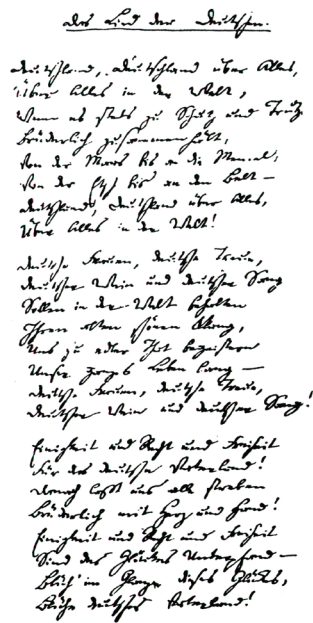 Das Lied der Deutschen.
Deutschland, Deutschland über Alles,
Über Alles in der Welt,
Wenn es stets zu Schutz und Trutz
Brüderlich zusammenhält,
Von der Maas bis an die Memel,
Von der Etsch bis an den Belt –
Deutschland, Deutschland über Alles,
Über Alles in der Welt!
Deutsche Frauen, deutsche Treue,
Deutscher Wein und deutscher Sang
Sollen in der Welt behalten
Ihren alten schönen Klang,
Uns zu edler That begeistern
Unser ganzes Leben lang –
Deutsche Frauen, deutsche Treue,
Deutscher Wein und deutscher Sang!
Einigkeit und Recht und Freiheit
Für das deutsche Vaterland!
Danach laßt uns alle streben
Brüderlich mit Herz und Hand!
Einigkeit und Recht und Freiheit
Sind des Glückes Unterpfand –
Blüh' im Glanze dieses Glückes,
Blühe deutsches Vaterland!